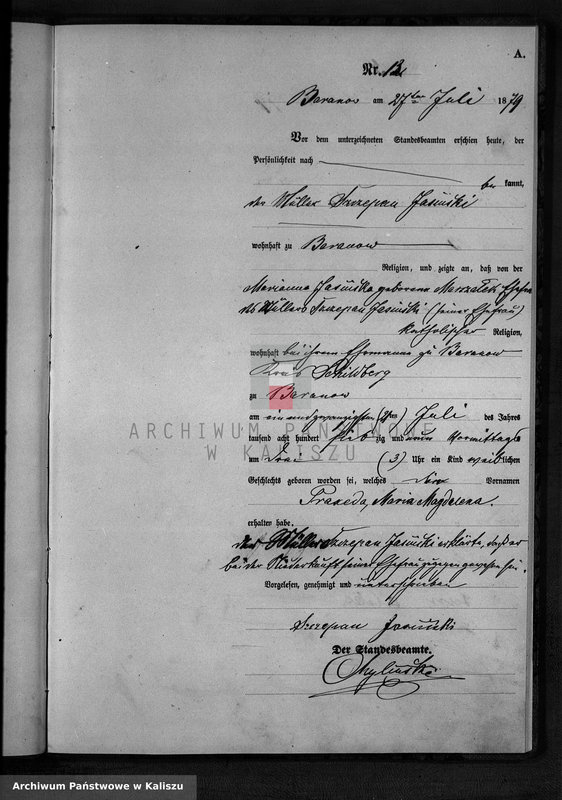 A.
Nr. 12
Baranow am 27ten Juli 1879
Vor dem unterzeichneten Standesbeamten erschien heute, der
Persönlichkeit nach
be kannt,
der Müller Szczepan Jasiński
wohnhaft zu Baranow
Religion, und zeigte an, daß von der
Marianna Jasińska geborene Ehefrau
des Müllers Szczepan Jasiński (seiner Ehefrau)
katholischer Religion,
wohnhaft bei ihrem Ehemanne zu Baranow
Kreis Schildberg
zu Baranow
am ein und zwanzigsten (21ten) Juli des Jahres
tausend acht hundert sieb zig und neun Vormittags
um drei (3) Uhr ein Kind weiblichen
Geschlechts geboren worden sei, welches den Vornamen
Praxeda, Maria Magdalena.
erhalten habe.
Der Müller Szczepan Jasiński erklärte, daß er
bei der Niederkunft seiner Ehefrau zugegen gewesen sei.
Vorgelesen, genehmigt und unterschrieben
Szczepan Jasiński
Der Standesbeamte.
ARCHIWUM PAŃSTWOWE
W KALISZU
Archiwum Państwowe w Kaliszu